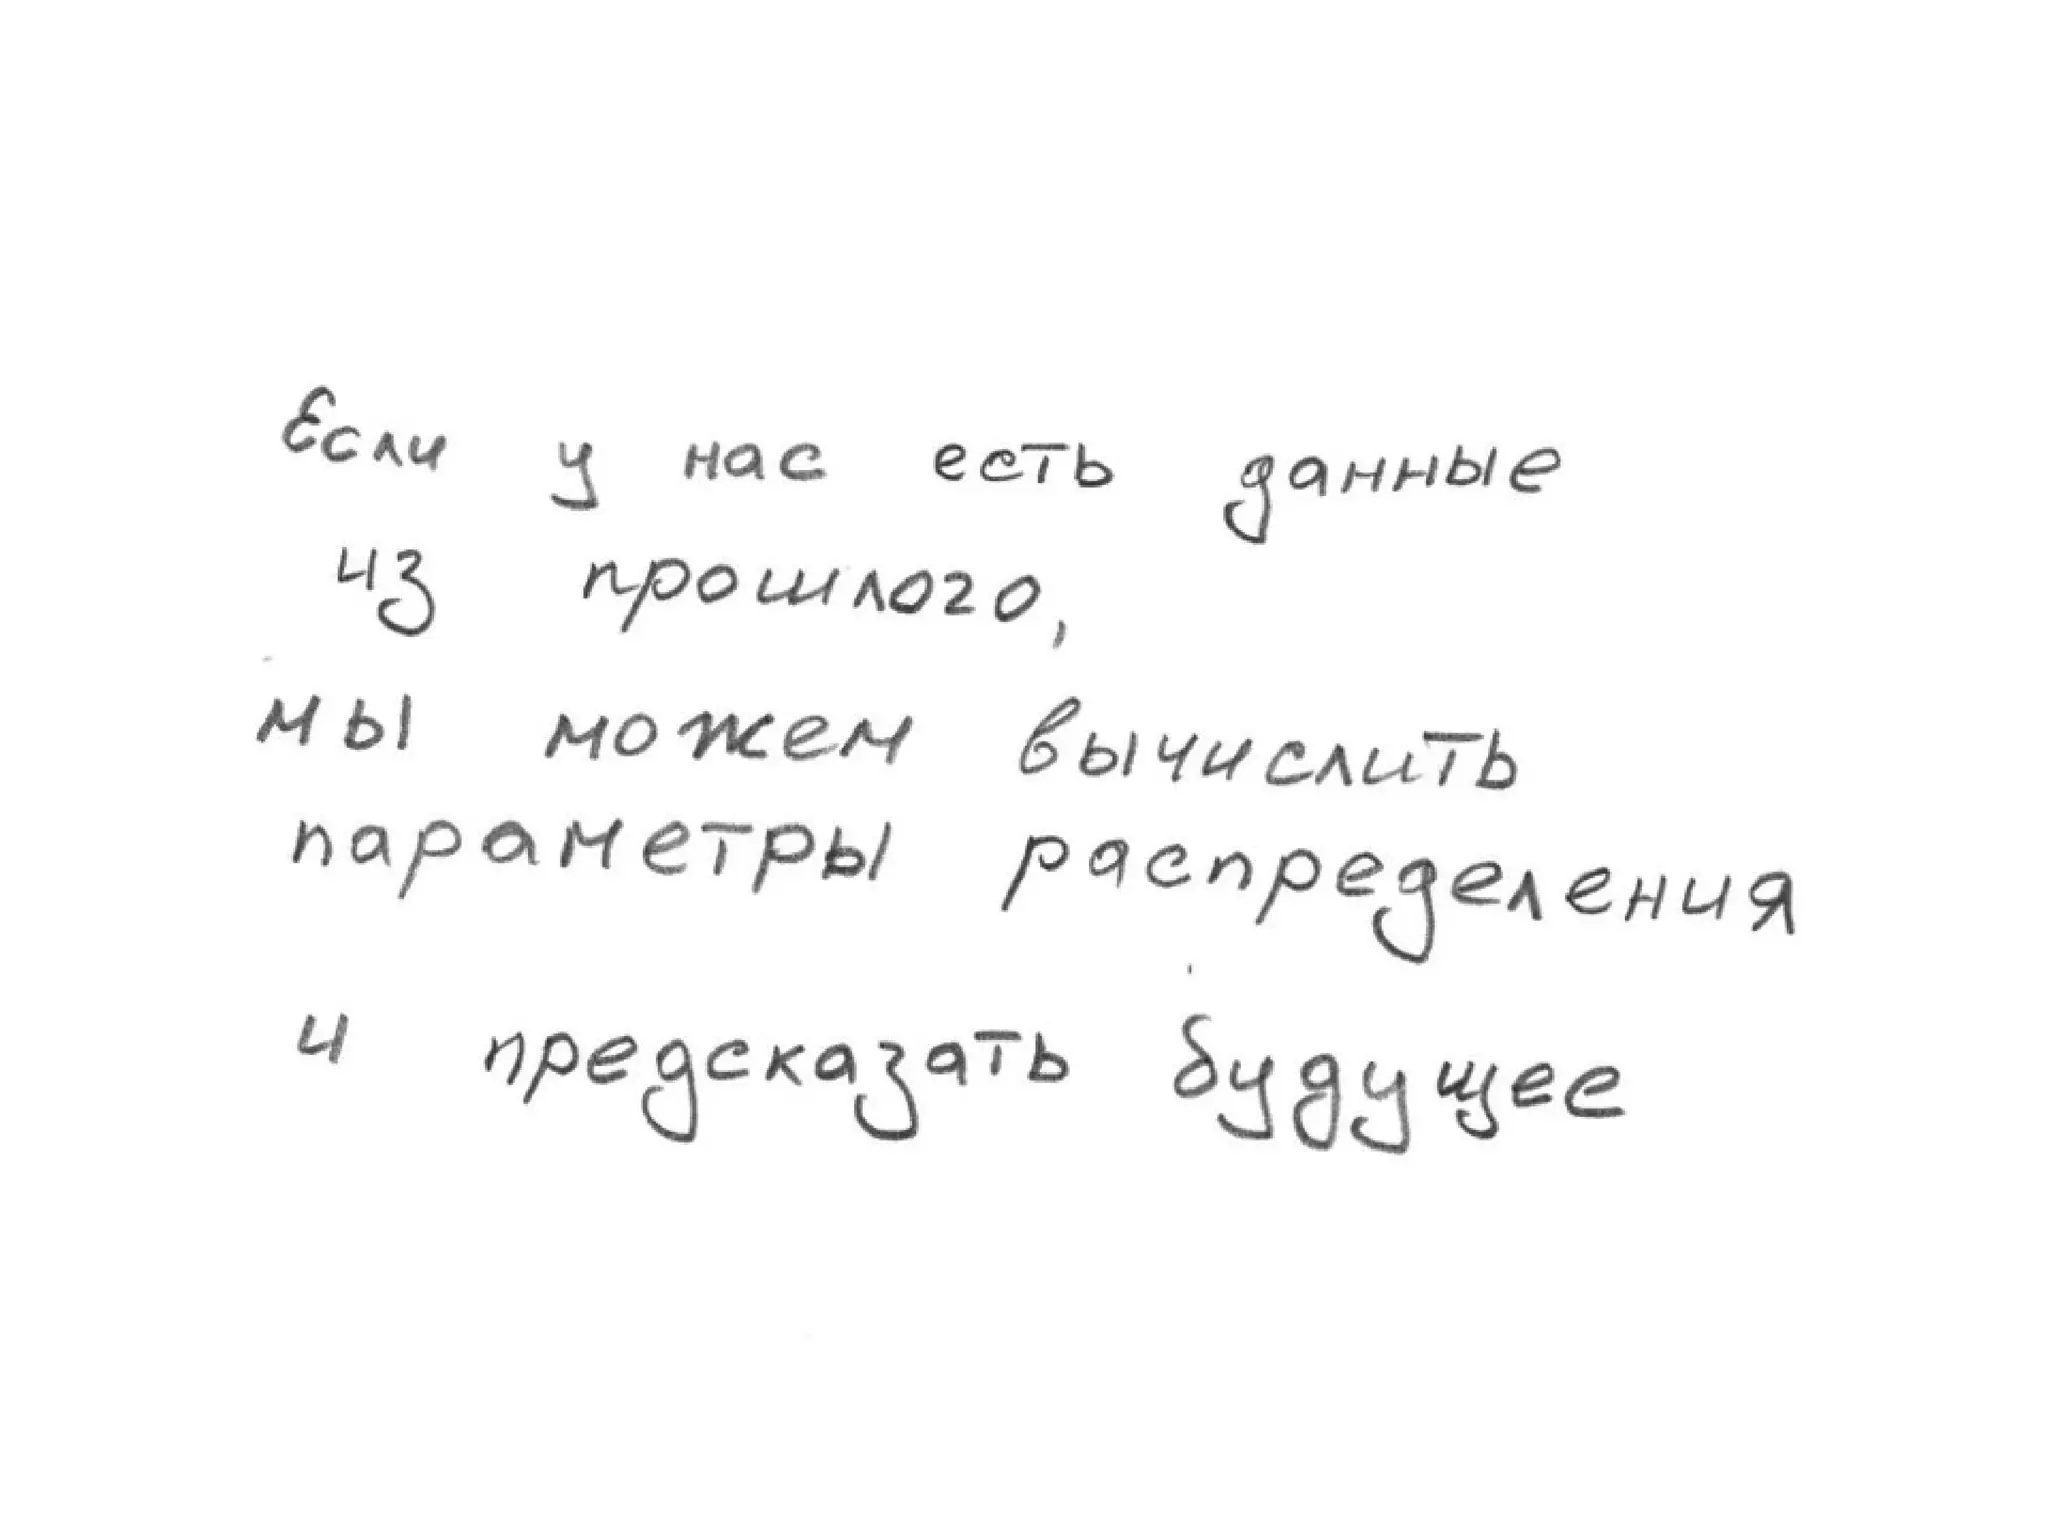 Если у нас есть данные
из прошлого,
мы можем вычислить
параметры распределения
и предсказать будущее